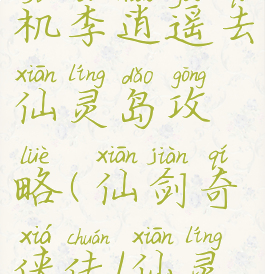 机李逍遥去
xiān líng dǎo gōng
仙灵岛攻
lüè xiān jiàn qí
略(仙剑奇
xiá chuán xiān líng
侠传/仙灵